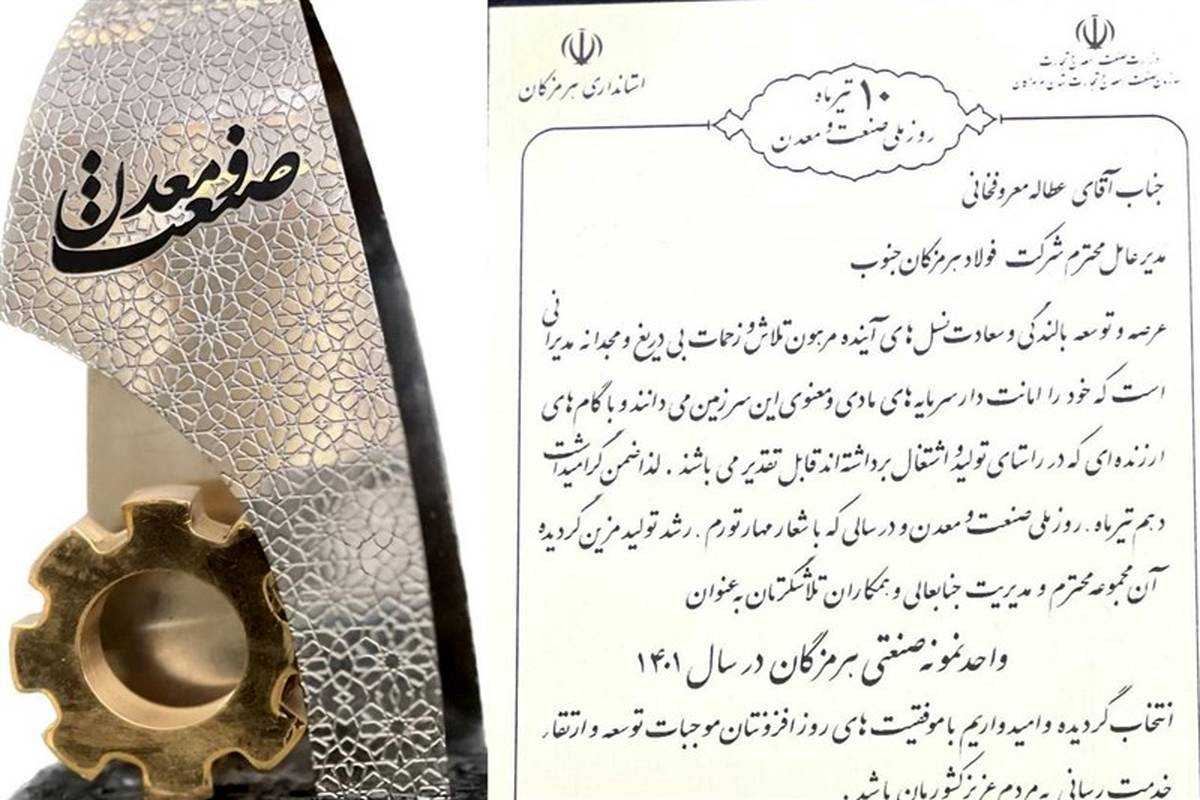 صنعت و معدن
وزارت صنعت، معدن و تجارت
سازمان صنعت، معدن و تجارت استان هرمزگان
استانداری هرمزگان
۱۰ تیر ماه
روز ملی صنعت و معدن
جناب آقای عطااله معروفخانی
مدیر عامل محترم شرکت فولاد هرمزگان جنوب
عرصه و توسعه بالندگی و سعادت نسل های آینده مرهون تلاش و زحمات بی دریغ و مجدانه مدیرانی
است که خود را امانت دار سرمایه های مادی و معنوی این سرزمین می دانند و با گام های
ارزنده ای که در راستای تولید و اشتغال برداشته اند قابل تقدیر می باشند . لذا ضمن گرامیداشت
دهم تیر ماه . روز ملی صنعت و معدن و در سالی که با شعار مهار تورم . رشد تولید مزین گردیده
آن مجموعه محترم و مدیریت جنابعالی و همکاران تلاشگرتان به عنوان
واحد نمونه صنعتی هرمزگان در سال ۱۴۰۱
انتخاب گردیده و امیدواریم با موفقیت های روز افزونتان موجبات توسعه و ارتقاء
خدمت رسانی به مردم عزیز کشورمان باشد .